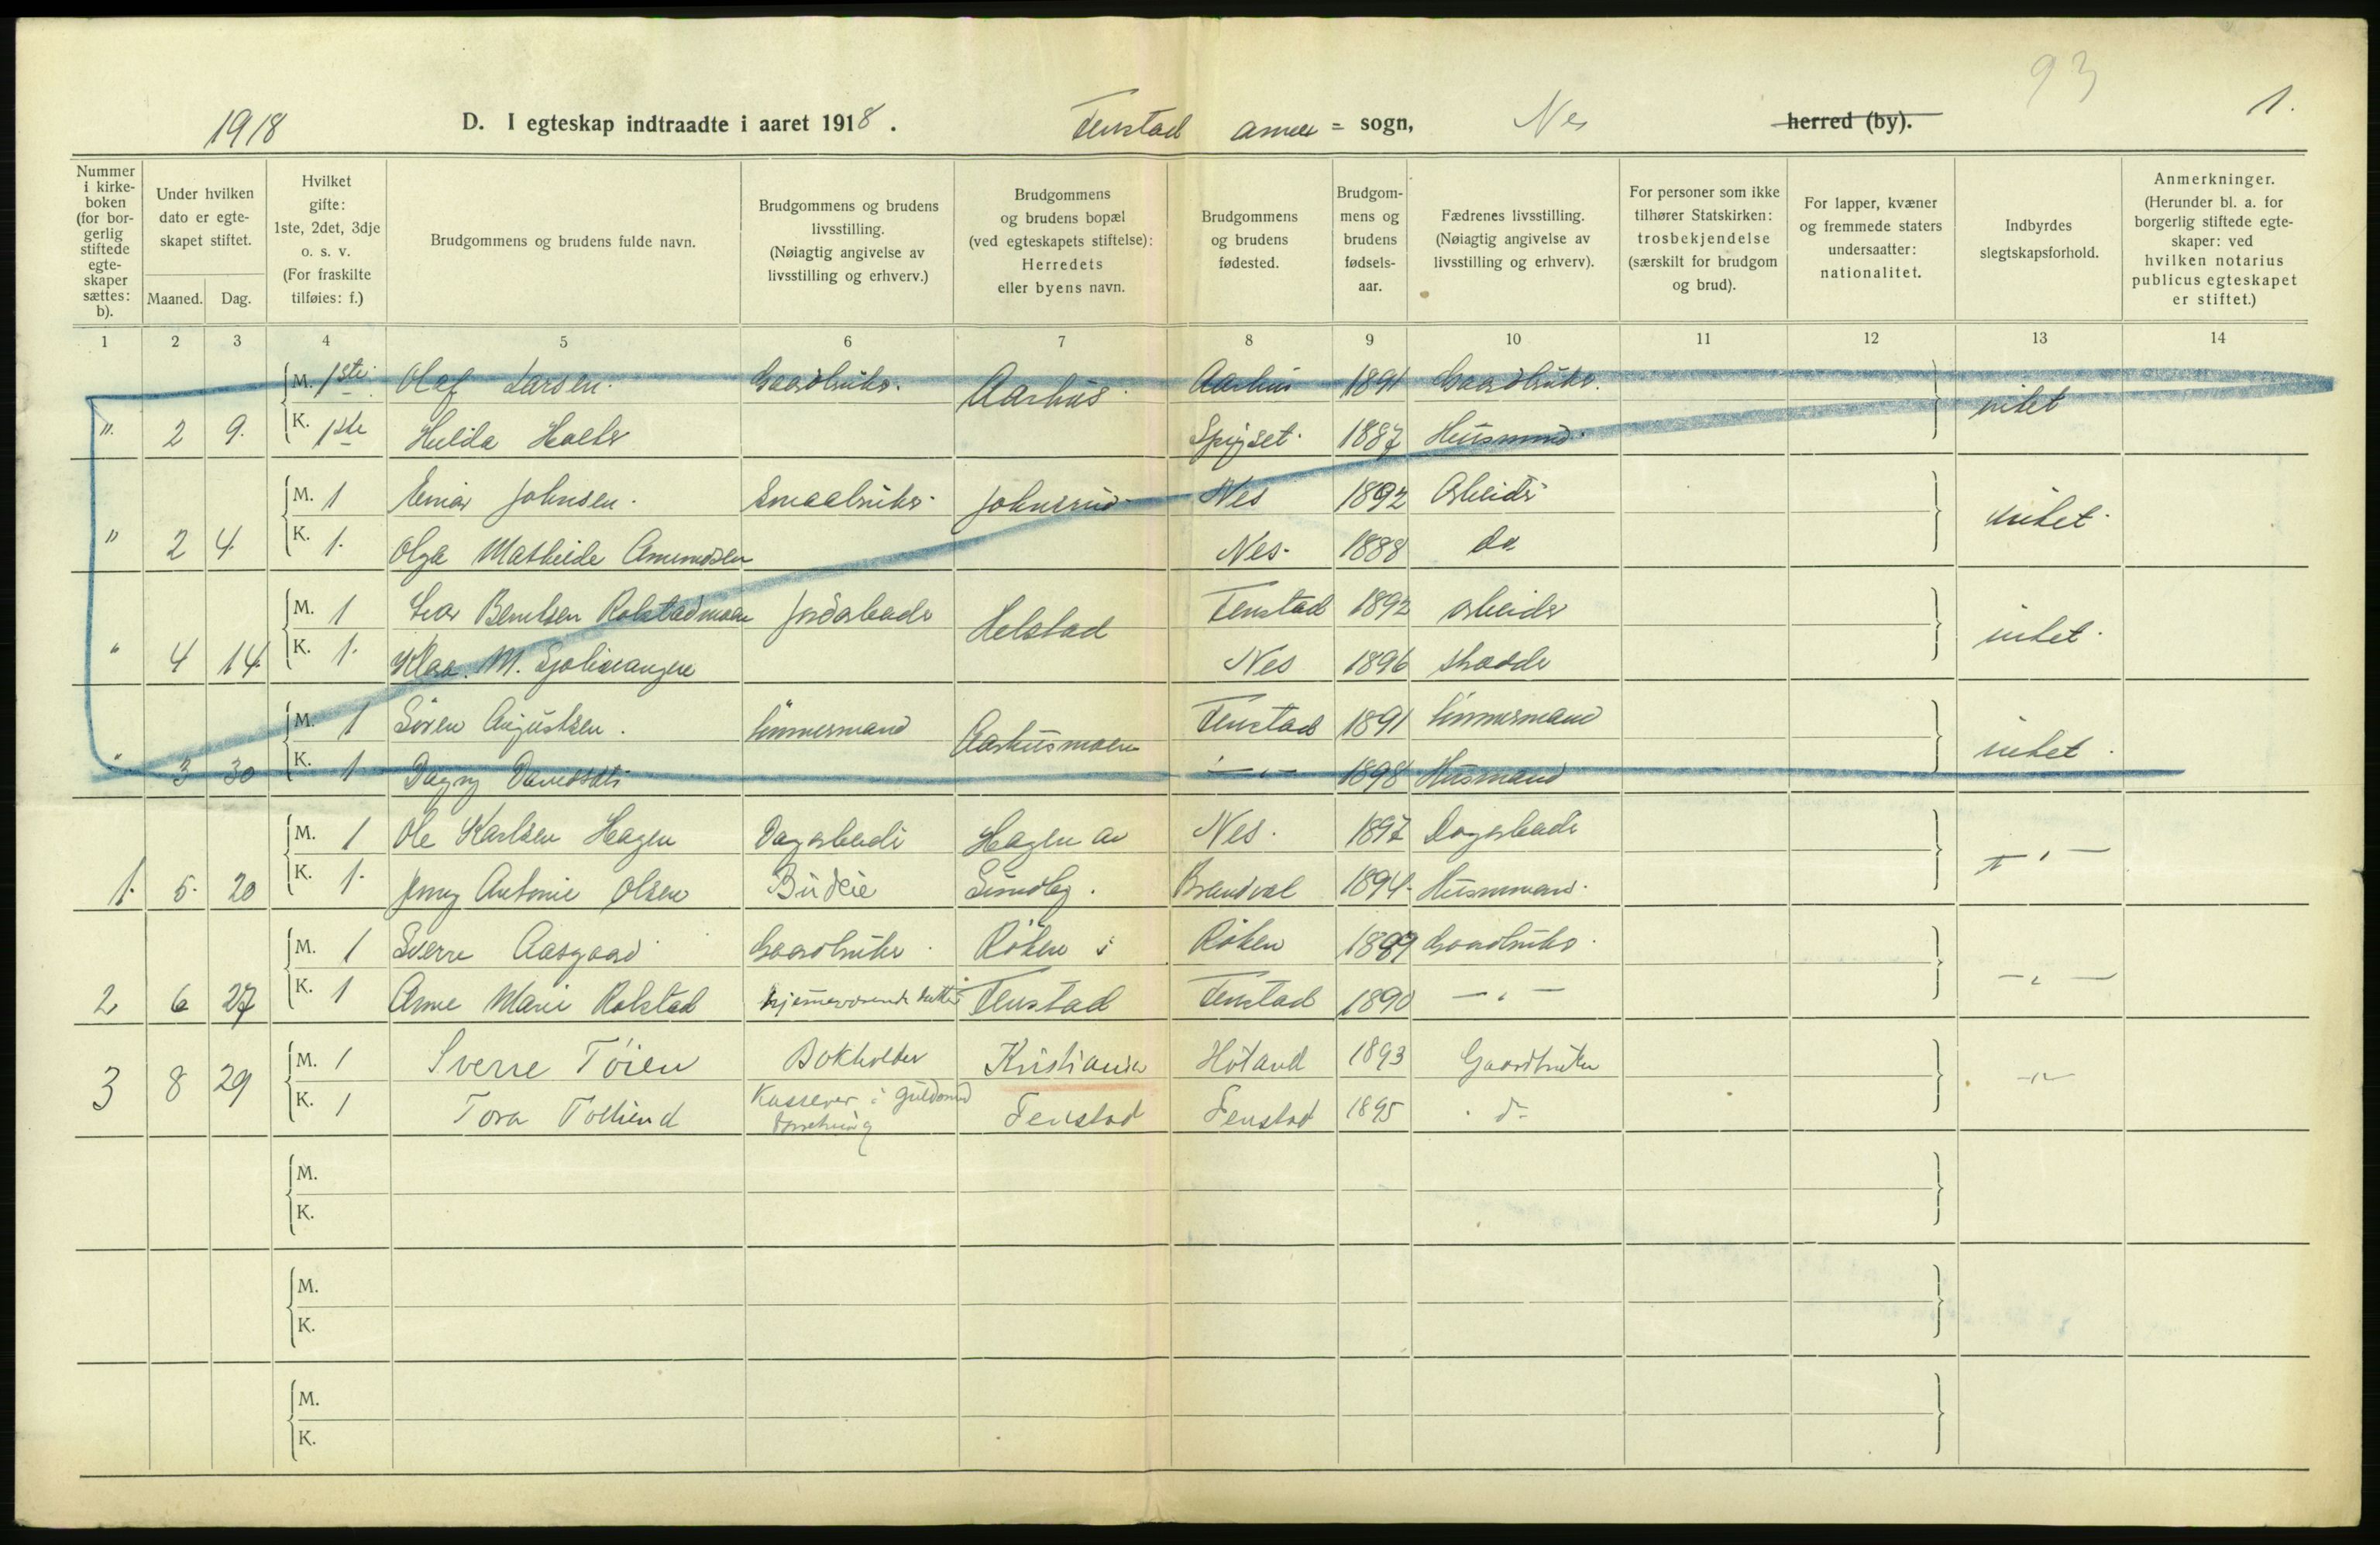 93
1918 D. I egteskap indtraadte i aaret 1918. Fenstad annex = sogn, Nes herred (by). 1.
Nummer i kirke-boken (for bor-gerlig stiftede egte-skaper sættes: b).
Under hvilken dato er egte-skapet stiftet.
Maaned. Dag.
Hvilket gifte: 1ste, 2det, 3dje o. s. v. (For fraskilte tilføies: f.)
Brudgommens og brudens fulde navn.
Brudgommens og brudens livsstilling. (Nøiagtig angivelse av livsstilling og erhverv.)
Brudgommens og brudens bopæl (ved egteskapets stiftelse): Herredets eller byens navn.
Brudgommens og brudens fødested.
Brudgom-mens og brudens fødsels-aar.
Fædrenes livsstilling. (Nøiagtig angivelse av livsstilling og erhverv).
For personer som ikke tilhører Statskirken: trosbekjendelse (særskilt for brudgom og brud).
For lapper, kvæner og fremmede staters undersaatter: nationalitet.
Indbyrdes slegtskapsforhold.
Anmerkninger. (Herunder bl. a. for borgerlig stiftede egte-skaper: ved hvilken notarius publicus egteskapet er stiftet.)
1 2 3 4 5 6 7 8 9 10 11 12 13 14
M. 1ste Olaf Larsen. Gaardbruker. Aarhus. Aarhus 1891 Gaardbruker. intet
". 2 9. K. 1ste Hilda Holter 1887 Husmand.
M. 1 Einar Johnsen. Smaabruker. Johnsrud Nes 1892 Arbeider intet.
" 2 4. K. 1. Olga Mathilde Amundsen Nes. 1888 do
M. 1 Ivar Berntsen Rolstadmoen Jordarbeider Helstad Fenstad 1892 arbeider intet.
" 4 14. K. 1. Klara M. Nes 1896 skrædder
M. 1 Søren Augustsen. Tømmermand Aarhusmoen Fenstad 1891 tømmermand intet.
" 3 30 K. 1 Dagny — " — 1898 Husmand
M. 1 Ole Karlsen Hagen Dagarbeider Hagen av Nes. 1897 Dagarbeider — " —
1. 5. 20 K. 1. Jenny Antonie Olsen Budeie Sundby. Brandval 1894. Husmand.
M. 1 Sverre Aasgaard Gaardbruker. Røken i Røken 1889 Gaardbruker. — " —
2 6 27 K. 1 Anne Marie Rolstad hjemmeværende datter Fenstad Fenstad 1890 — " —
M. 1 Sverre Tøien Bokholder Kristiania Høland 1893 Gaardbruker — " —
3 8 29 K. 1 Tora Kasserer i guldsmed Fenstad Fenstad 1895 do
forretning
M.
K.
M.
K.
M.
K.